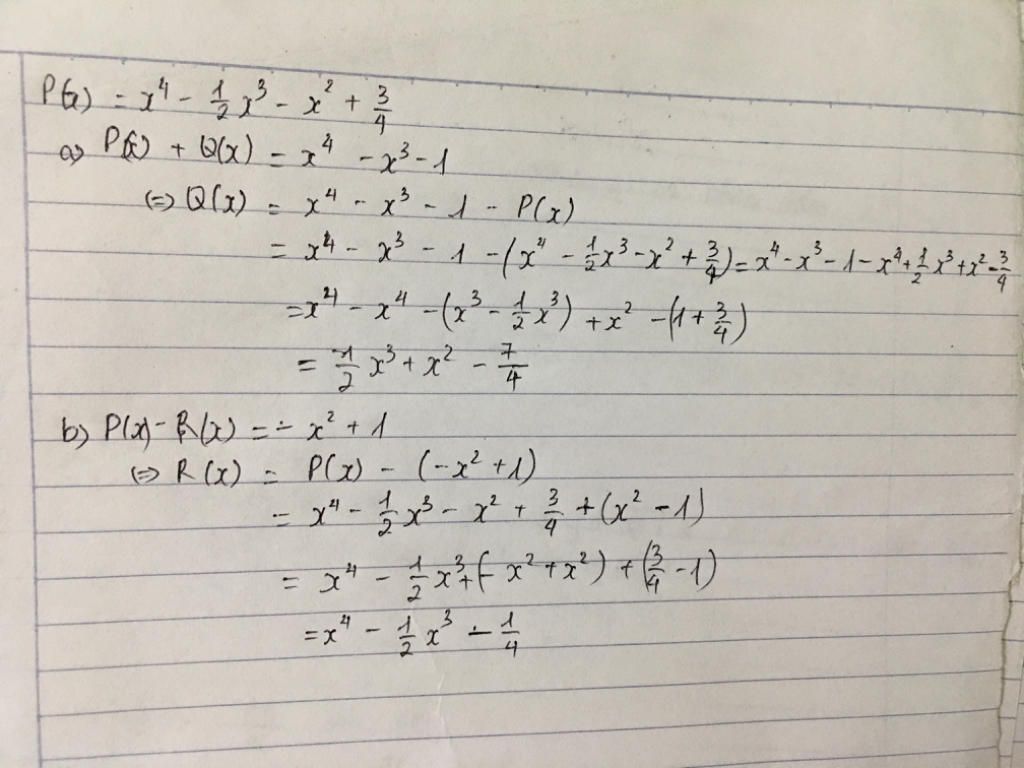 P(x) = x⁴ - 1/2 x³ - x² + 3/4
a) P(x) + Q(x) = x⁴ - x³ - 1
(=) Q(x) = x⁴ - x³ - 1 - P(x)
= x⁴ - x³ - 1 - (x⁴ - 1/2 x³ - x² + 3/4) = x⁴ - x³ - 1 - x⁴ + 1/2 x³ + x² - 3/4
= x⁴ - x⁴ - (x³ - 1/2 x³) + x² - (1 + 3/4)
= -1/2 x³ + x² - 7/4
b) P(x) - R(x) = - x² + 1
(=) R(x) = P(x) - (-x² + 1)
= x⁴ - 1/2 x³ - x² + 3/4 + (x² - 1)
= x⁴ - 1/2 x³ + (- x² + x²) + (3/4 - 1)
= x⁴ - 1/2 x³ - 1/4